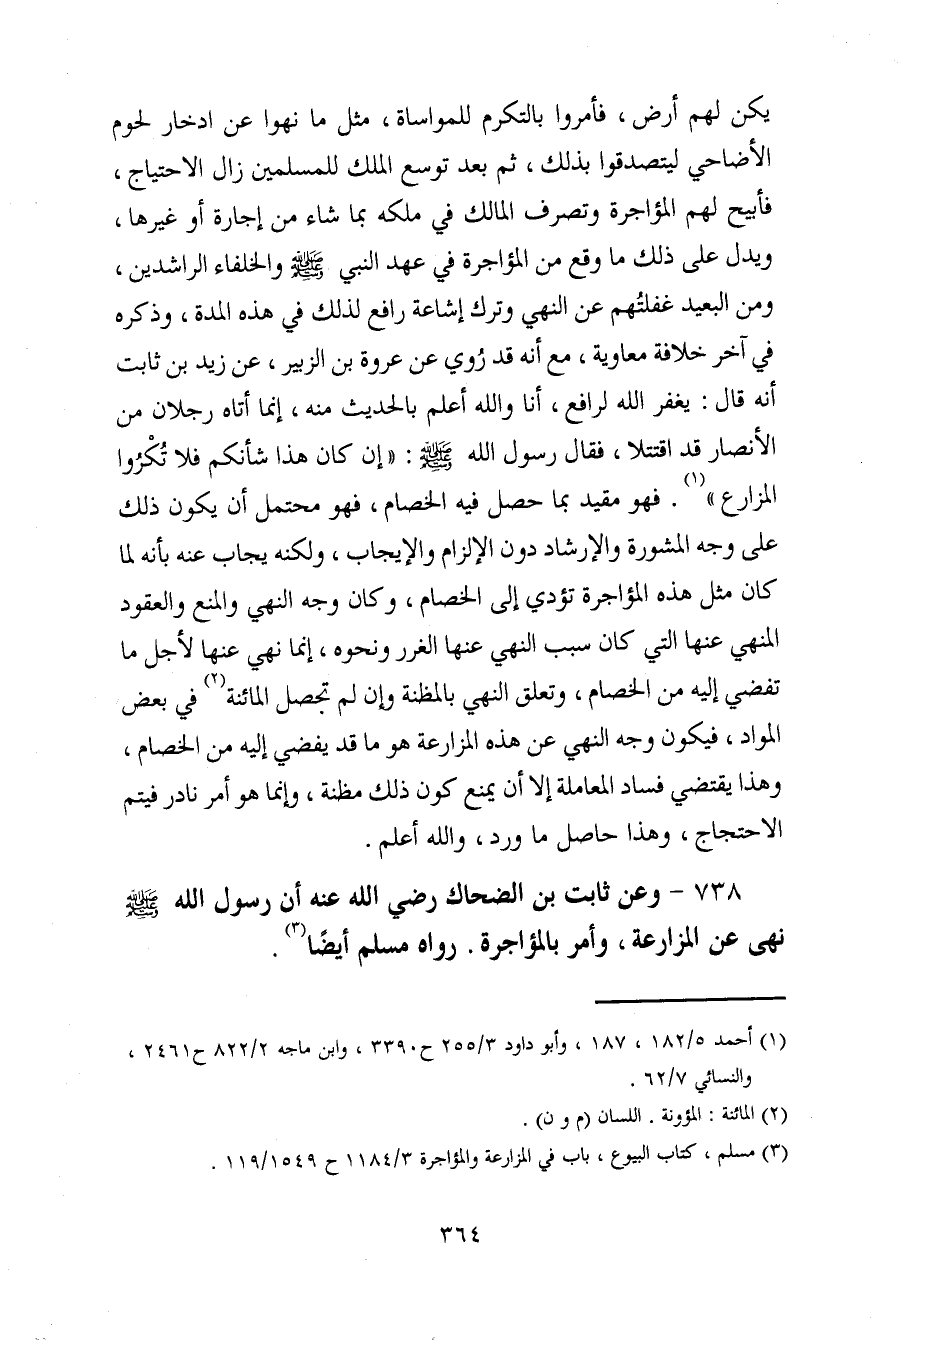 يكن لهم أرض ، فأمروا بالتكرم للمواساة ، مثل ما نهوا عن ادخار لحوم
الأضاحي ليتصدقوا بذلك ، ثم بعد توسع الملك للمسلمين زال الاحتياج ،
فأبيح لهم المؤاجرة وتصرف المالك في ملكه بما شاء من إجارة أو غيرها ،
ويدل على ذلك ما وقع من المؤاجرة في عهد النبي ﷺ والخلفاء الراشدين ،
ومن البعيد غفلتُهم عن النهي وترك إشاعة رافع لذلك في هذه المدة ، وذكره
في آخر خلافة معاوية ، مع أنه قد رُوي عن عروة بن الزبير ، عن زيد بن ثابت
أنه قال : يغفر الله لرافع ، أنا والله أعلم بالحديث منه ، إنما أتاه رجلان من
الأنصار قد اقتتلا ، فقال رسول الله ﷺ : « إن كان هذا شأنكم فلا تُكْرُوا
المزارع »(١) . فهو مقيد بما حصل فيه الخصام ، فهو محتمل أن يكون ذلك
على وجه المشورة والإرشاد دون الإلزام والإيجاب ، ولكنه يجاب عنه بأنه لما
كان مثل هذه المؤاجرة تؤدي إلى الخصام ، وكان وجه النهي والمنع والعقود
المنهي عنها التي كان سبب النهي عنها الغرر ونحوه ، إنما نهي عنها لأجل ما
تفضي إليه من الخصام ، وتعلق النهي بالمظنة وإن لم تحصل المائنة(٢) في بعض
المواد ، فيكون وجه النهي عن هذه المزارعة هو ما قد يفضي إليه من الخصام ،
وهذا يقتضي فساد المعاملة إلا أن يمنع كون ذلك مظنة ، وإنما هو أمر نادر فيتم
الاحتجاج ، وهذا حاصل ما ورد ، والله أعلم .
٧٣٨ – وعن ثابت بن الضحاك رضي الله عنه أن رسول الله ﷺ
نهى عن المزارعة ، وأمر بالمؤاجرة . رواه مسلم أيضًا(٣) .
(١) أحمد ١٨٢/٥ ، ١٨٧ ، وأبو داود ٢٥٥/٣ ح٣٣٩٠ ، وابن ماجه ٨٢٢/٢ ح٢٤٦١ ،
والنسائي ٦٢/٧ .
(٢) المائنة : المؤونة . اللسان (م و ن) .
(٣) مسلم ، كتاب البيوع ، باب في المزارعة والمؤاجرة ١١٨٤/٣ ح ١١٩/١٥٤٩ .
٣٦٤